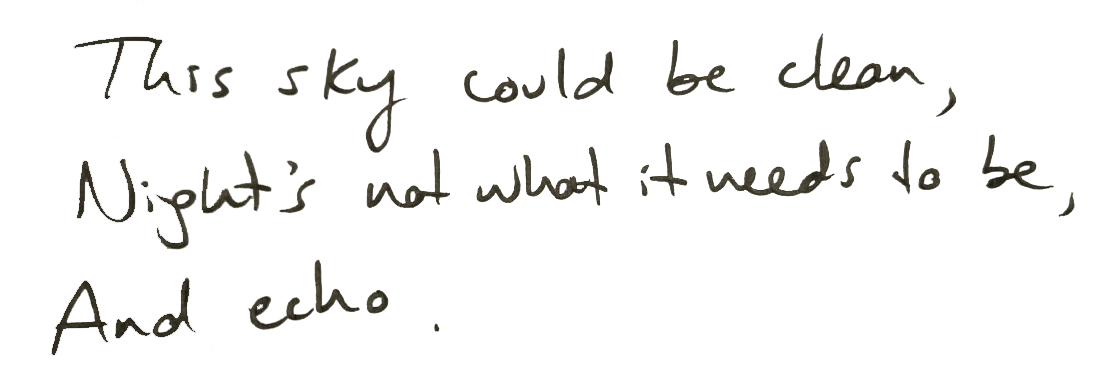 This sky could be clean,
Night's not what it needs to be,
And echo.